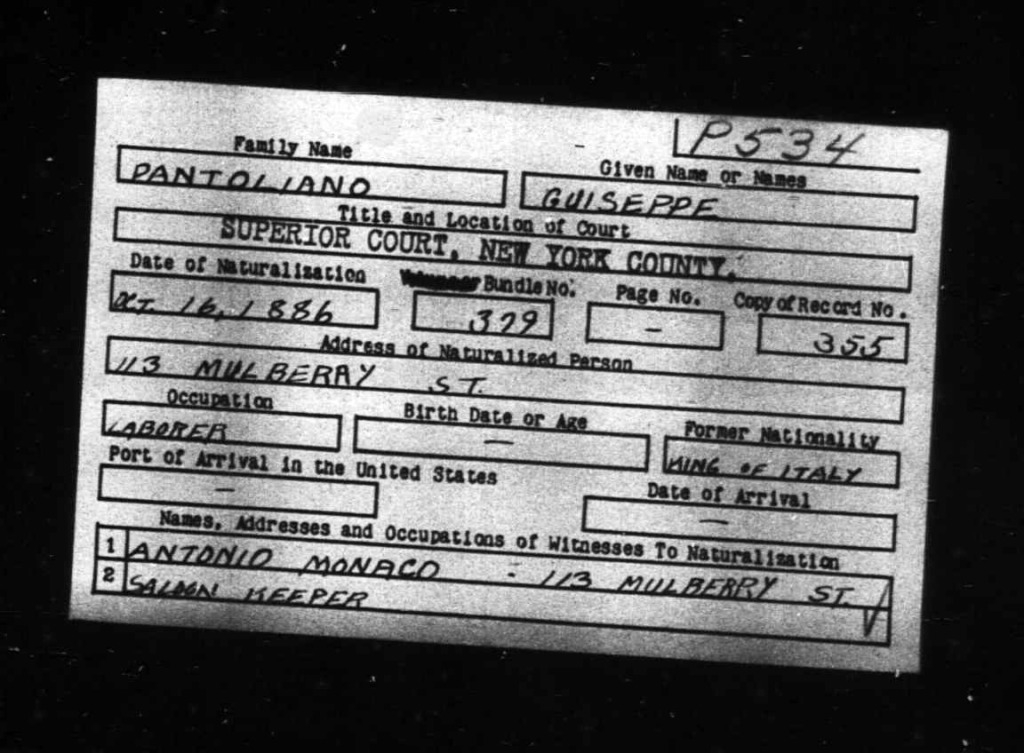 P534
Family Name Given Name or Names
PANTOLIANO GUISEPPE
Title and Location of Court
SUPERIOR COURT, NEW YORK COUNTY.
Date of Naturalization Bundle No. Page No. Copy of Record No.
OCT. 16, 1886 379 - 355
Address of Naturalized Person
113 MULBERRY ST.
Occupation Birth Date or Age Former Nationality
LABORER - KING OF ITALY
Port of Arrival in the United States Date of Arrival
- -
Names, Addresses and Occupations of Witnesses To Naturalization
1 ANTONIO MONACO - 113 MULBERRY ST.
2 SALOON KEEPER